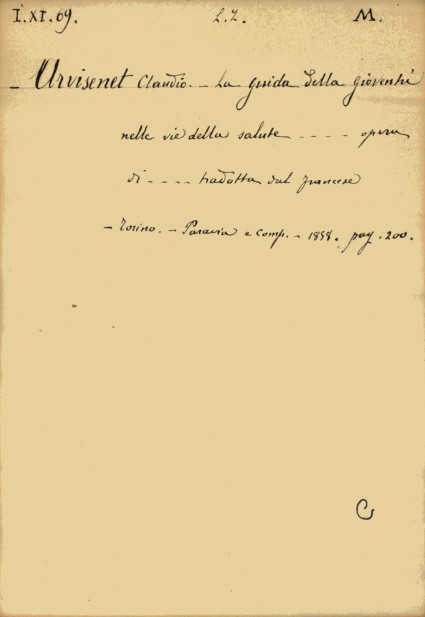 I.XI.69. L.Z. M.
- Arvisenet Claudio. - La guida della gioventù
nelle vie della salute - - - - opera
di - - - - tradotta dal francese
- Torino. - Paravia e Comp. - 1858. pag. 200.
C